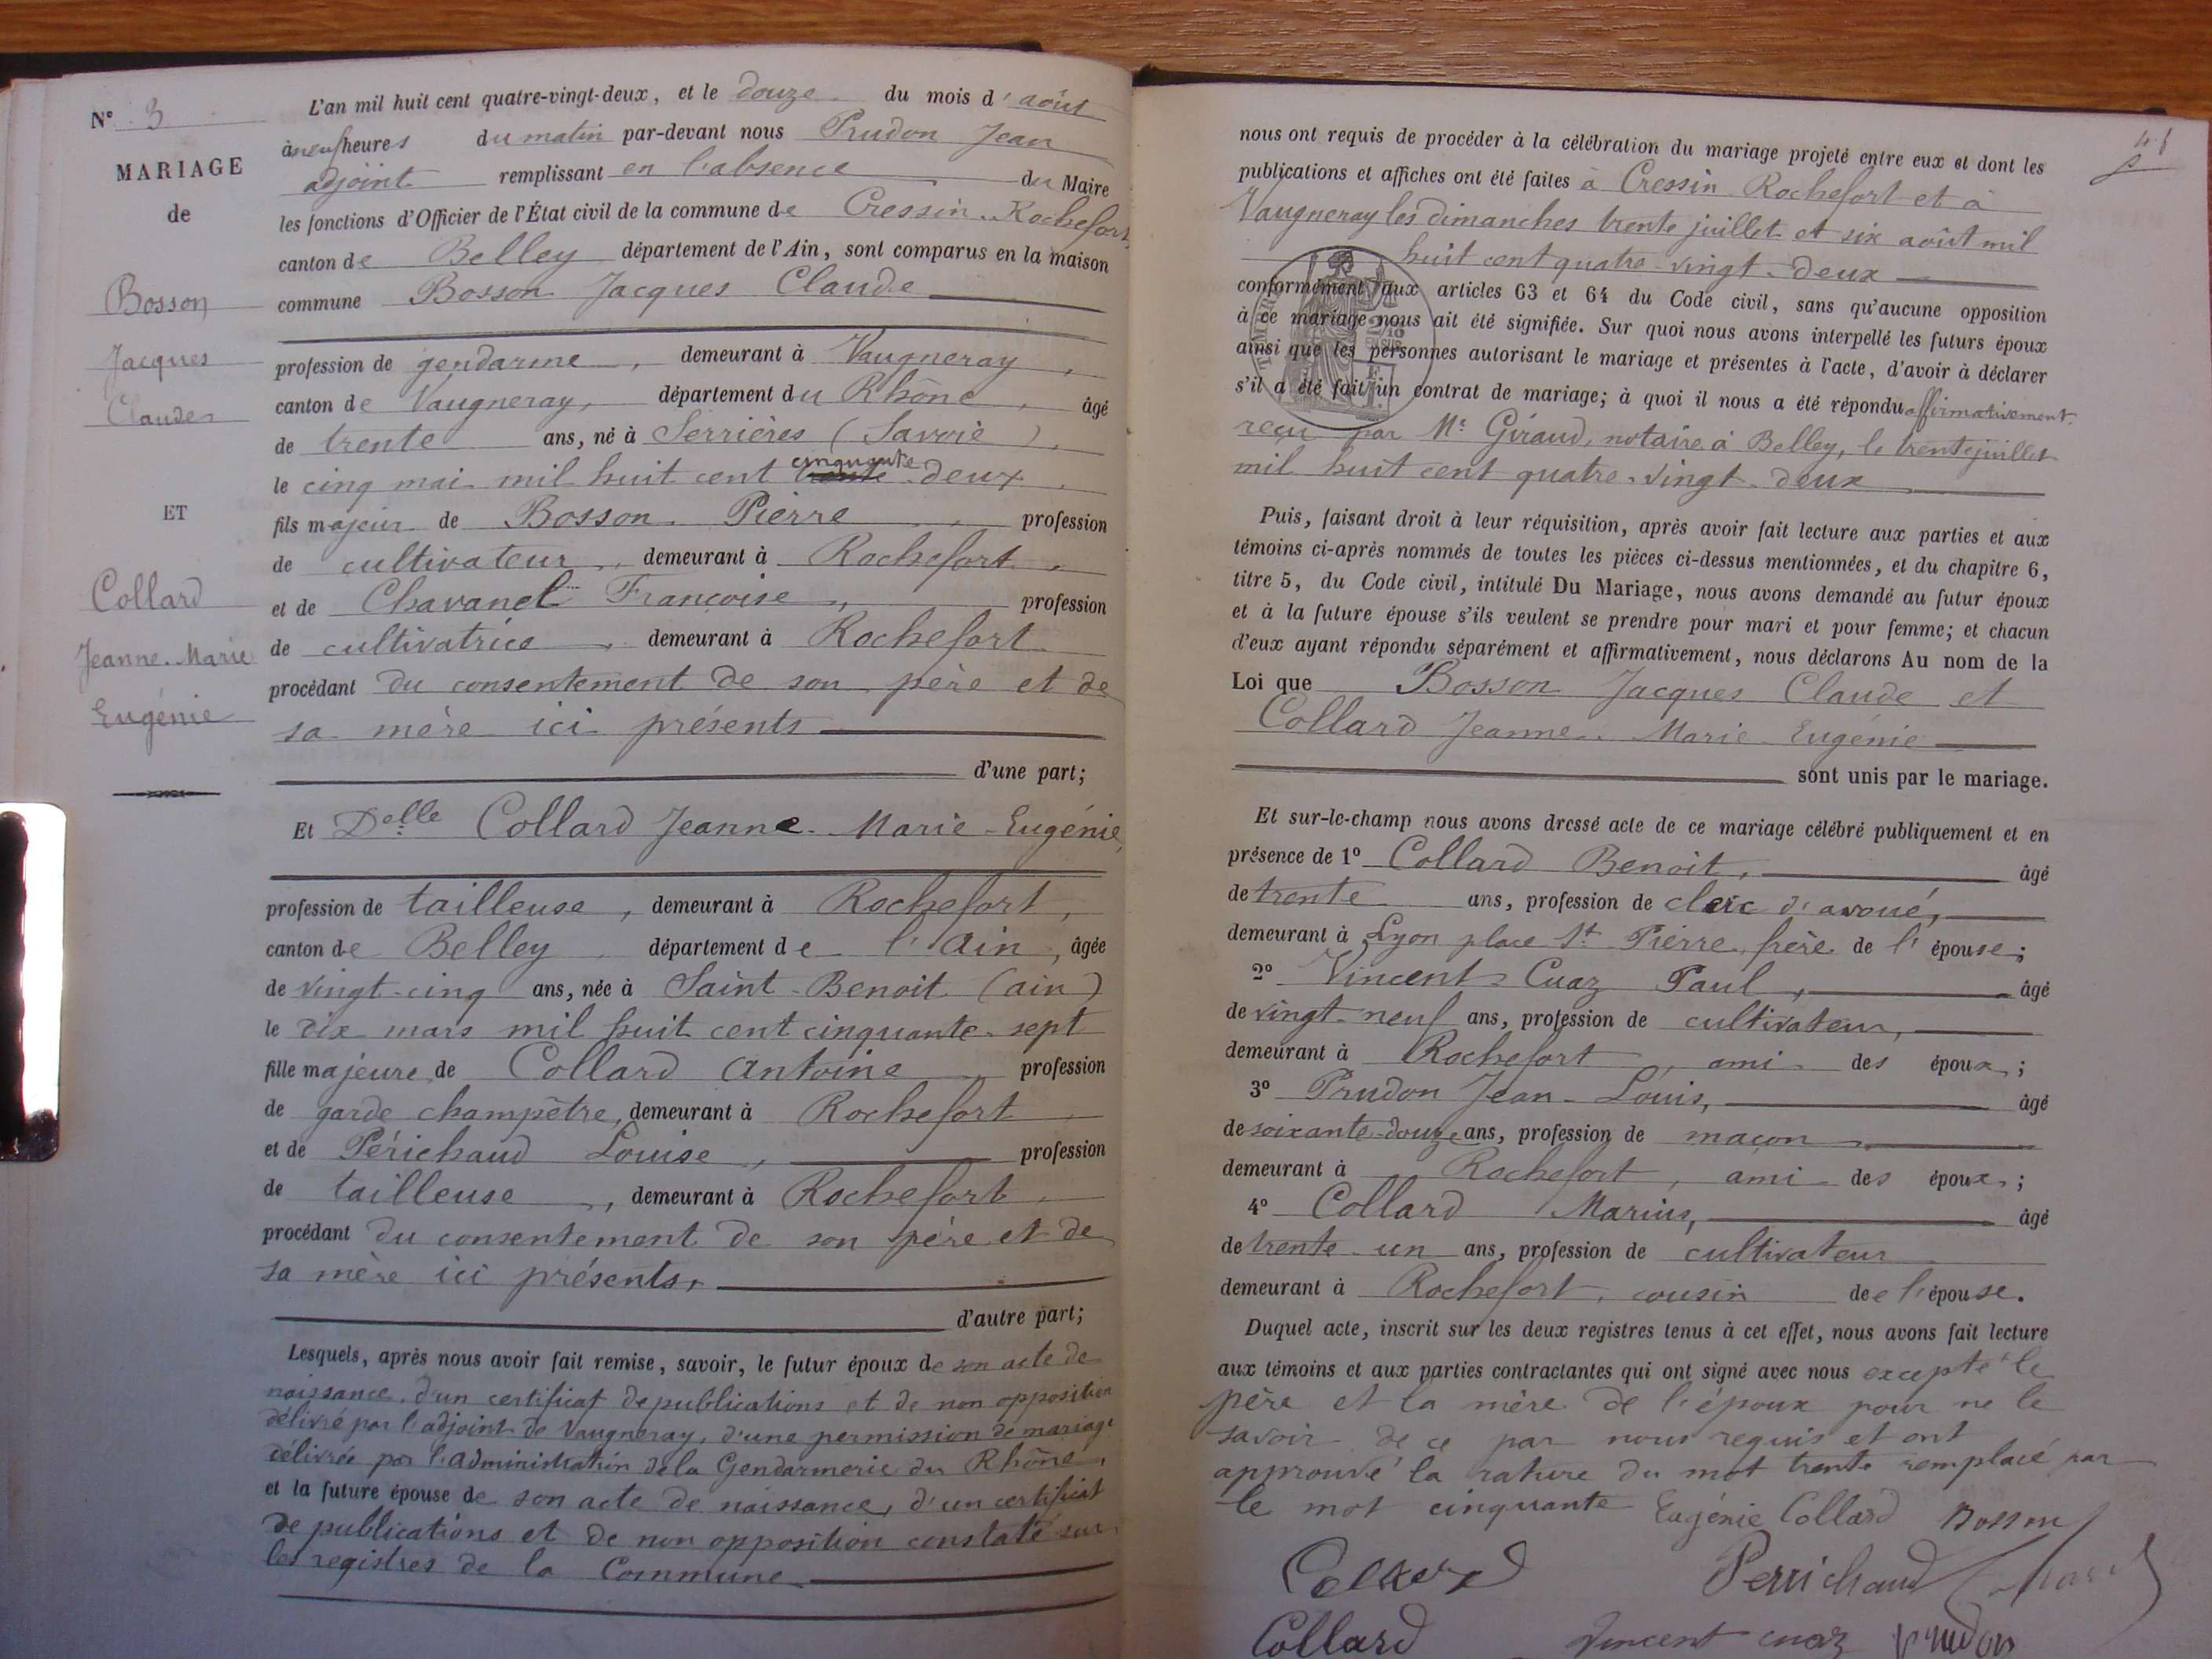 N° 3
MARIAGE
de
Bosson
Jacques
Claude
ET
Collard
Jeanne-Marie
Eugénie
L'an mil huit cent quatre-vingt-deux, et le douze du mois d'août
à neuf heures du matin par-devant nous Prudon Jean
adjoint remplissant en l'absence du Maire
les fonctions d'Officier de l'État civil de la commune de Cressin-Rochefort
canton de Belley département de l'Ain, sont comparus en la maison
commune Bosson Jacques Claude
profession de gendarme, demeurant à Vaugneray,
canton de Vaugneray, département du Rhône, âgé
de trente ans, né à Serrières (Savoie),
cinquante
le cinq mai mil huit cent trente-deux
fils majeur de Bosson Pierre, profession
de cultivateur, demeurant à Rochefort
et de Chavanel Françoise, profession
de cultivatrice, demeurant à Rochefort
procédant du consentement de son père et de
sa mère ici présents
d'une part;
Et Delle Collard Jeanne-Marie-Eugénie,
profession de tailleuse, demeurant à Rochefort,
canton de Belley département de l'Ain, âgée
de vingt-cinq ans, née à Saint-Benoit (ain)
le dix mars mil huit cent cinquante-sept
fille majeure de Collard Antoine, profession
de garde champêtre, demeurant à Rochefort
et de Périchaud Louise, profession
de tailleuse, demeurant à Rochefort
procédant du consentement de son père et de
sa mère ici présents,
d'autre part;
Lesquels, après nous avoir fait remise, savoir, le futur époux de son acte de
naissance, d'un certificat de publications et de non opposition
délivré par l'adjoint de Vaugneray, d'une permission de mariage
délivrée par l'administration de la Gendarmerie du Rhône,
et la future épouse de son acte de naissance, d'un certificat
de publications et de non opposition constaté sur
les registres de la Commune
nous ont requis de procéder à la célébration du mariage projeté entre eux et dont les
publications et affiches ont été faites à Cressin Rochefort et à
Vaugneray les dimanches trente juillet et six août mil
huit cent quatre-vingt-deux
conformément aux articles 63 et 64 du Code civil, sans qu'aucune opposition
à ce mariage nous ait été signifiée. Sur quoi nous avons interpellé les futurs époux
ainsi que les personnes autorisant le mariage et présentes à l'acte, d'avoir à déclarer
s'il a été fait un contrat de mariage; à quoi il nous a été répondu affirmativement
reçu par Me Giraud, notaire à Belley, le trente juillet
mil huit cent quatre-vingt-deux
Puis, faisant droit à leur réquisition, après avoir fait lecture aux parties et aux
témoins ci-après nommés de toutes les pièces ci-dessus mentionnées, et du chapitre 6,
titre 5, du Code civil, intitulé Du Mariage, nous avons demandé au futur époux
et à la future épouse s'ils veulent se prendre pour mari et pour femme; et chacun
d'eux ayant répondu séparément et affirmativement, nous déclarons Au nom de la
Loi que Bosson Jacques Claude et
Collard Jeanne-Marie-Eugénie
sont unis par le mariage.
Et sur-le-champ nous avons dressé acte de ce mariage célébré publiquement et en
présence de 1° Collard Benoit, âgé
de trente ans, profession de clerc d'avoué,
demeurant à Lyon place St Pierre, frère de l'épouse;
2° Vincent-Cuaz Paul, âgé
de vingt-neuf ans, profession de cultivateur,
demeurant à Rochefort, ami des époux;
3° Prudon Jean-Louis, âgé
de soixante-douze ans, profession de maçon
demeurant à Rochefort, ami des époux;
4° Collard Marius, âgé
de trente-un ans, profession de cultivateur
demeurant à Rochefort, cousin de l'épouse.
Duquel acte, inscrit sur les deux registres tenus à cet effet, nous avons fait lecture
aux témoins et aux parties contractantes qui ont signé avec nous excepté le
père et la mère de l'époux pour ne le
savoir de ce par nous requis et ont
approuvé la rature du mot trente remplacé par
le mot cinquante Eugénie Collard Bosson
Collard Perrichaud Collard
Collard Vincent cuaz Prudon